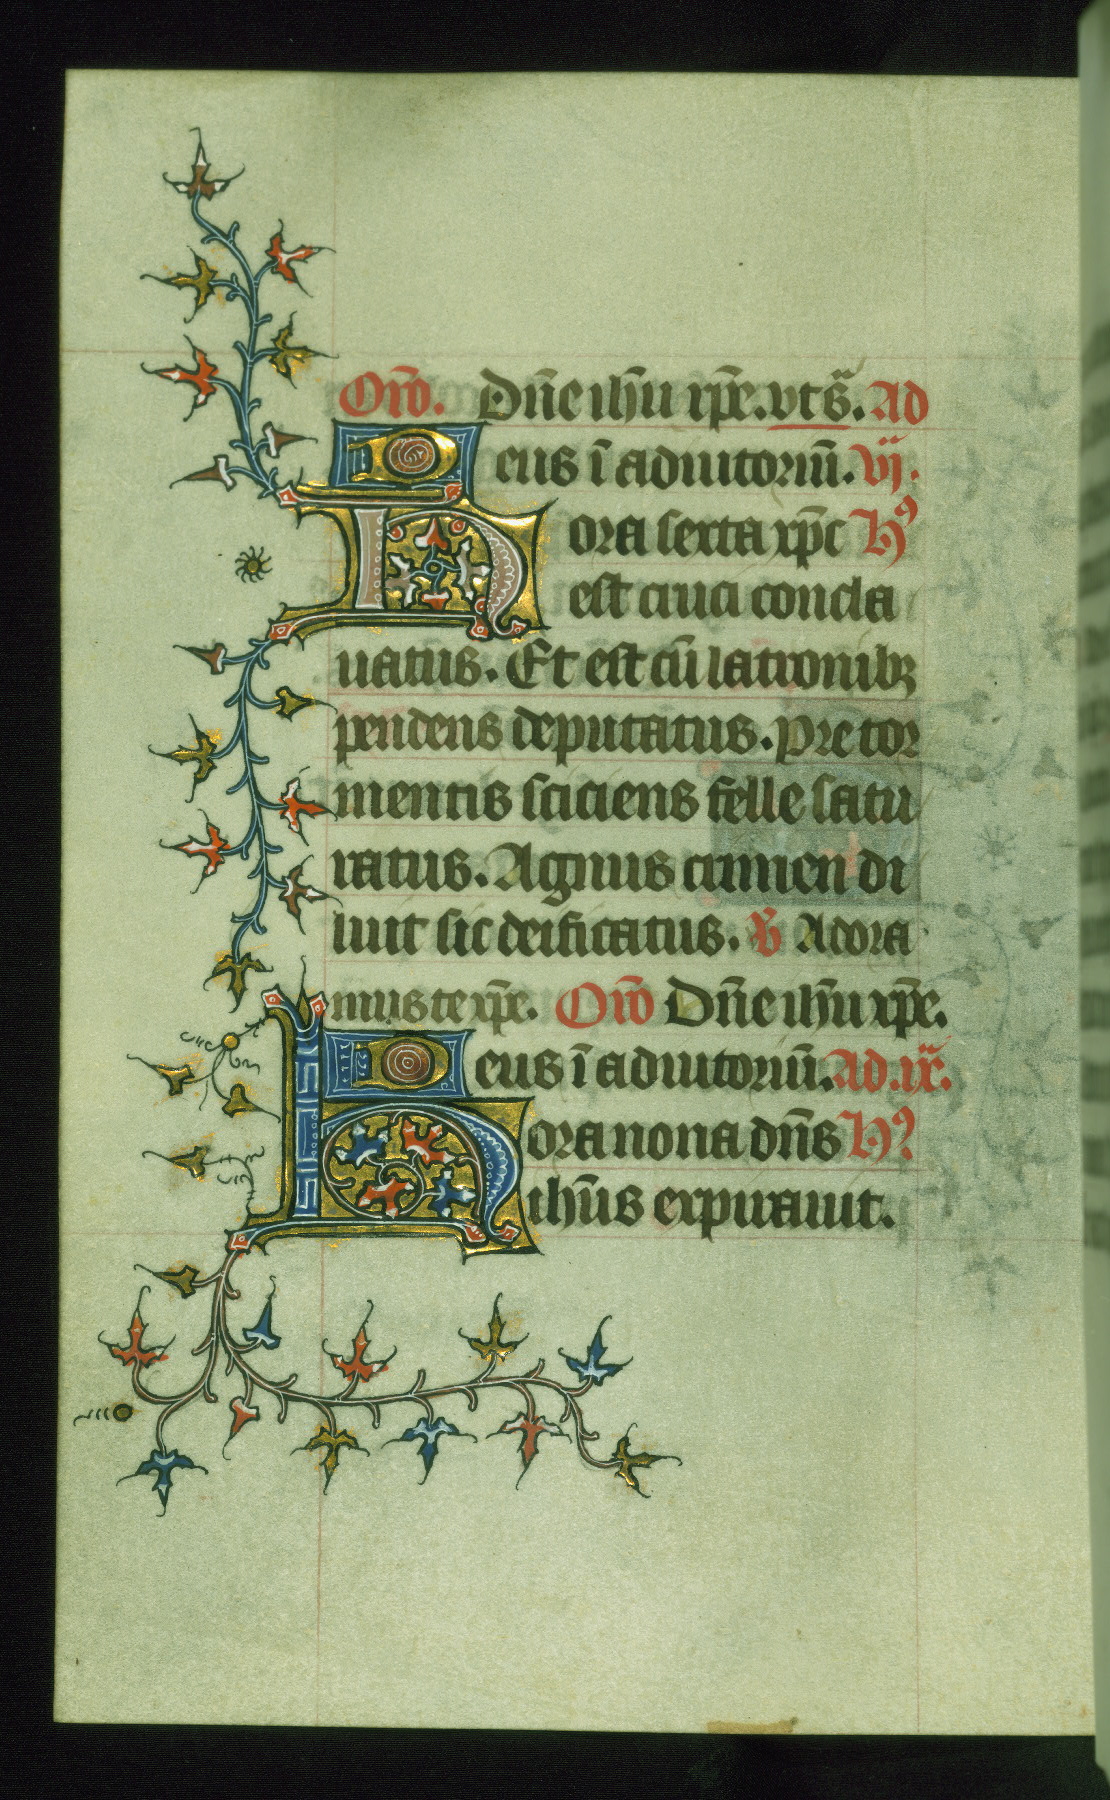 Orō. Dn̄e ih̄u xp̄e. vt sᷓ. Ad
Deus ī adiutoriū. vj.
Hora sexta xp̄c Hꝰ
est cruci concla
uatus. Et est cū latronibꝫ
pendens deputatus. Pre tor
mentis sciciens felle satu
ratus. Agnus crimen di
luit sic deificatus. V̷ Adora
mus te xp̄e. Orō Dn̄e ih̄u xp̄e.
Deus ī adiutoriū. Ad .ix.
Hora nona dn̄s Hꝰ
ih̄us expirauit.